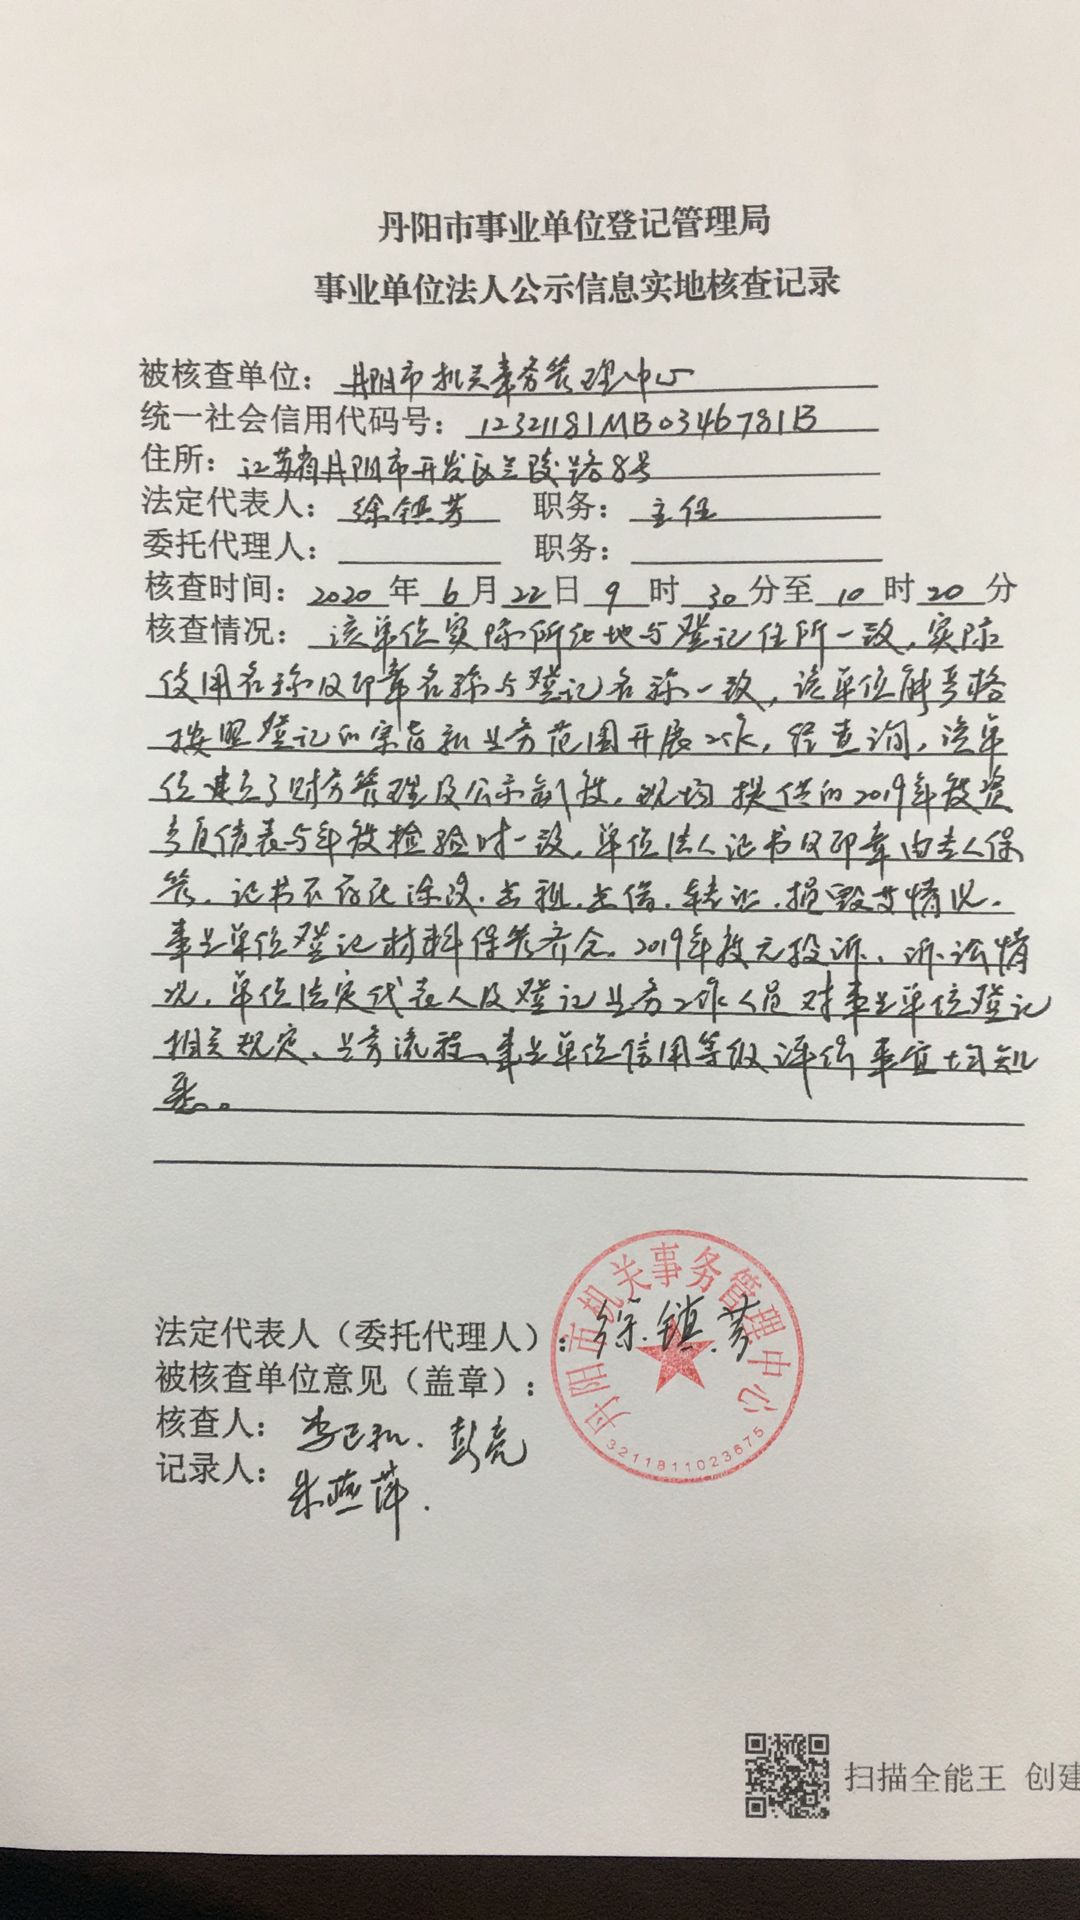 丹阳市事业单位登记管理局
事业单位法人公示信息实地核查记录
被核查单位：丹阳市机关事务管理中心
统一社会信用代码号：12321181MB0346781B
住所：江苏省丹阳市开发区兰陵路8号
法定代表人：徐锁芳 职务：主任
委托代理人： 职务：
核查时间：2020年6月22日9时30分至10时20分
核查情况：该单位实际所在地与登记住所一致，实际
使用名称及印章名称与登记名称一致，该单位能严格
按照登记的宗旨和业务范围开展工作，经查询，该单
位建立了财务管理及公示制度，现场提供的2019年度资
产负债表与年度检验时一致，单位法人证书及印章由专人保
管，证书不存在涂改、出租、出借、转让、损毁等情况，
事业单位登记材料保管齐全。2019年度无投诉、诉讼情
况，单位法定代表人及登记业务工作人员对事业单位登记
相关规定、业务流程、事业单位信用等级评价事宜均知
悉。
法定代表人（委托代理人）：徐锁芳
被核查单位意见（盖章）：
丹阳市机关事务管理中心
3211811023675
核查人：李正和、彭亮
记录人：朱燕萍
扫描全能王 创建